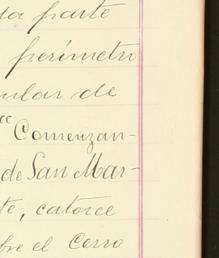 da parte
perímetro
ular de
"Comenzan-
de San Mar-
te, catorce
bre el Cerro